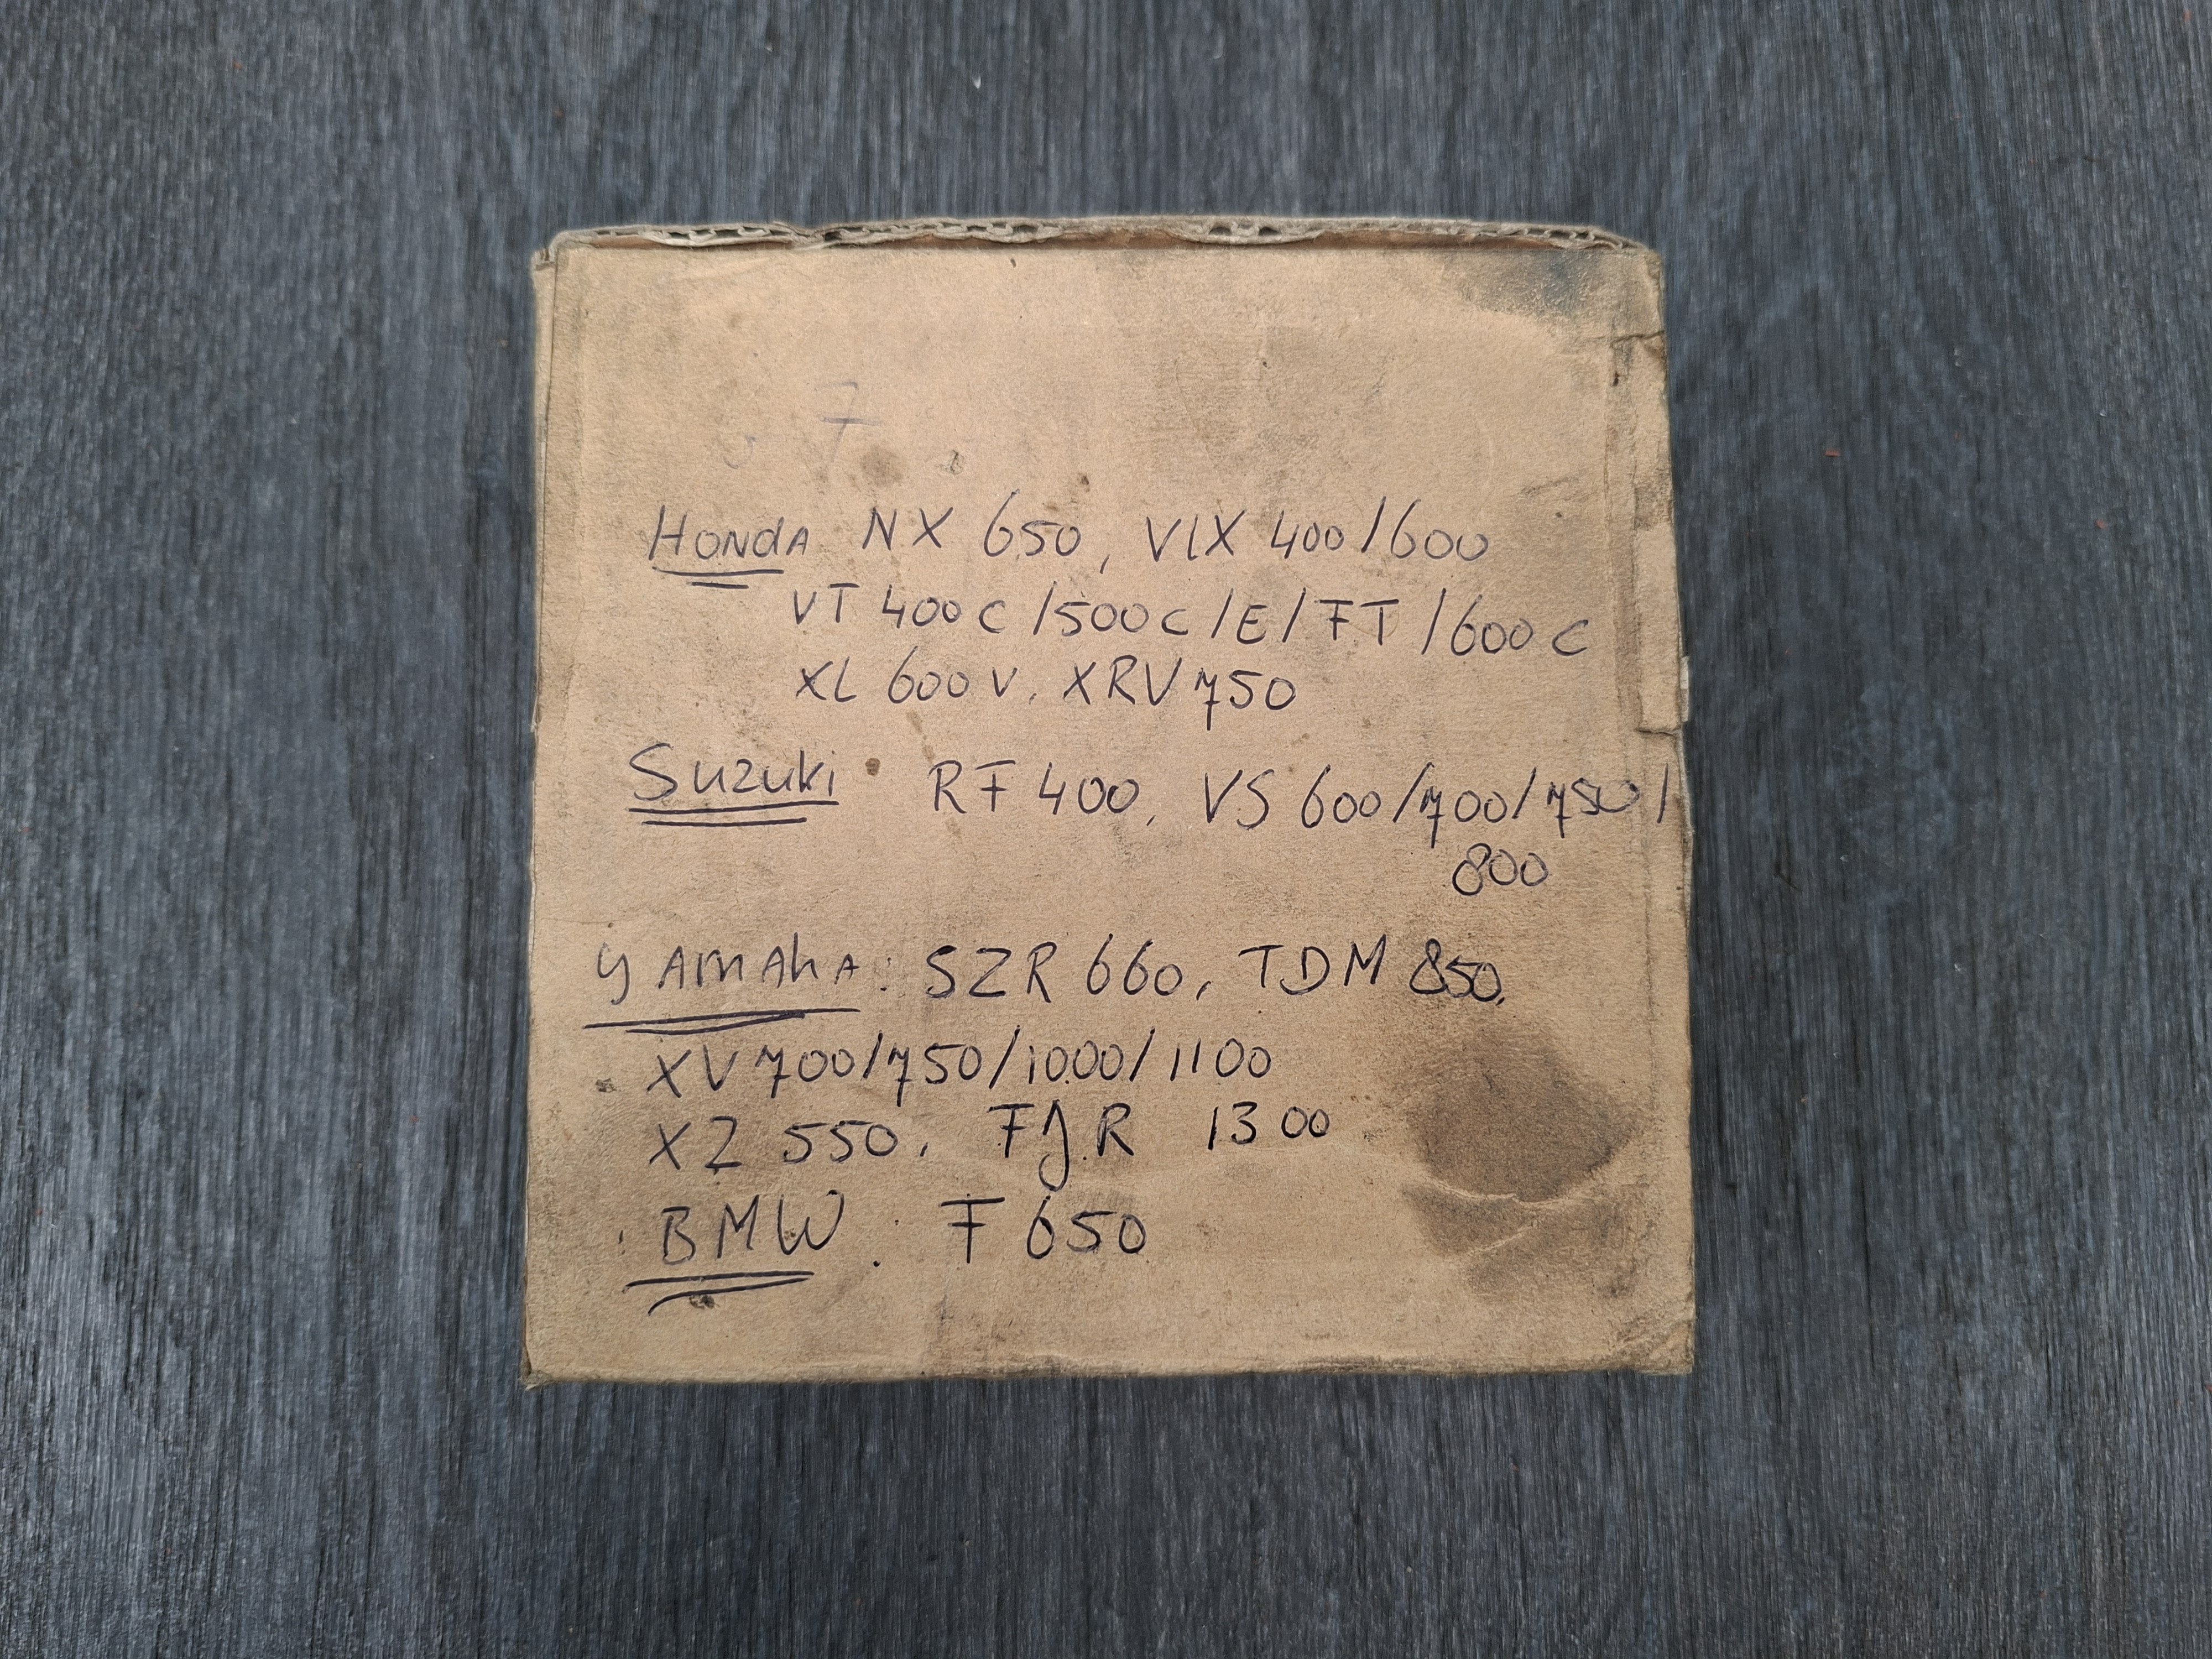 7
HONDA NX 650, VLX 400/600
VT 400 C /500 C /E/ FT /600 C
XL 600 V, XRV 750
Suzuki RF 400, VS 600/700/750/
800
YAMAhA: SZR 660, TDM 850,
XV 700/750/1000/1100
XZ 550, FJR 1300
BMW : F 650